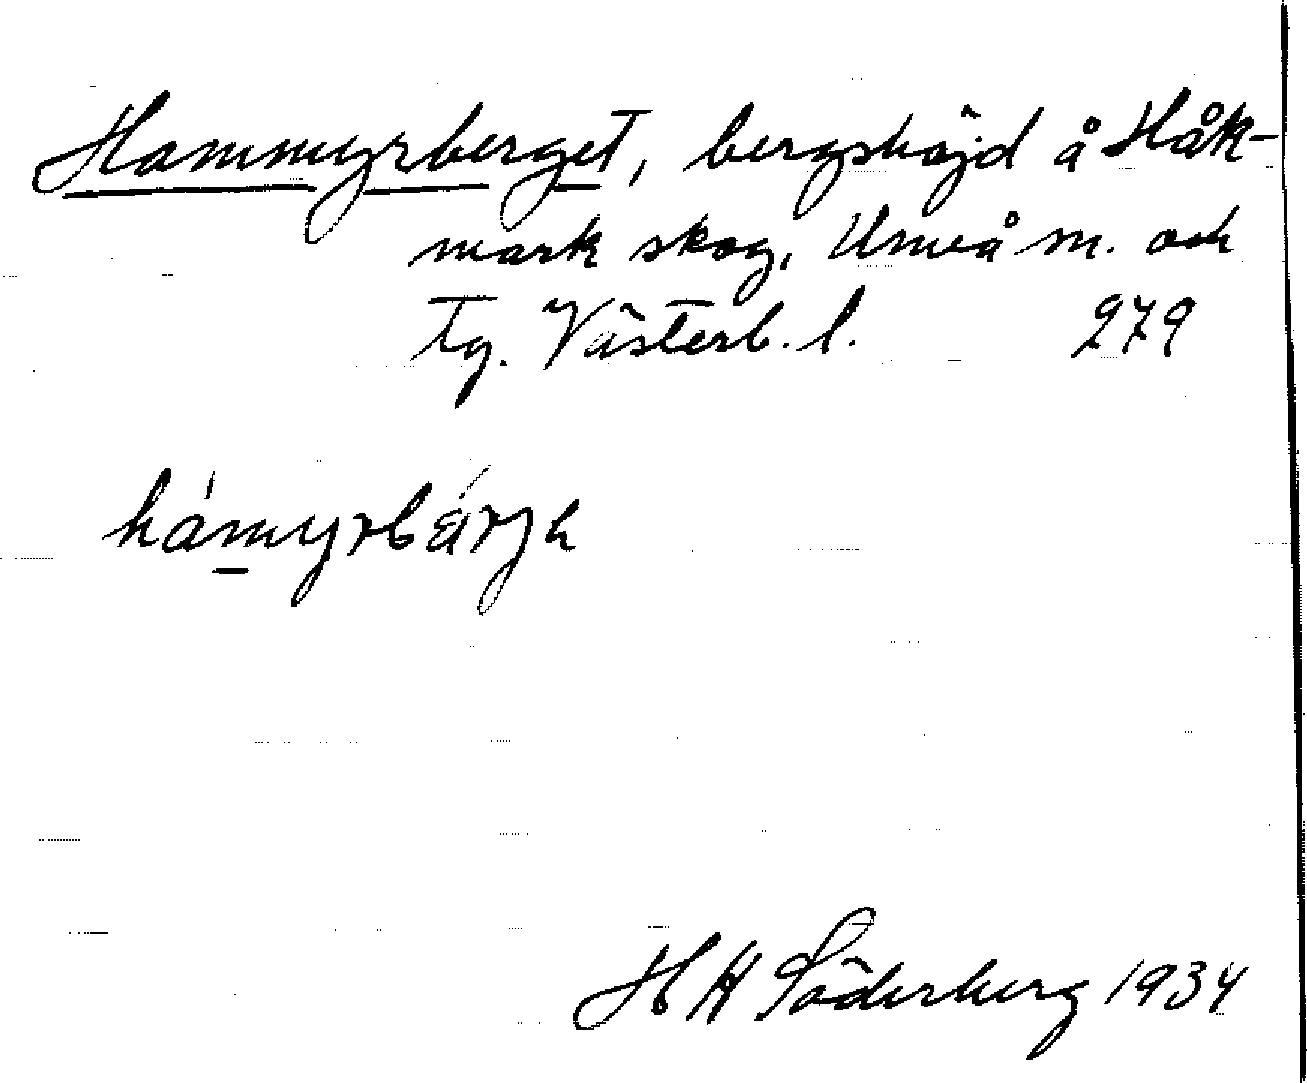 Hammyrberget, bergshöjd å Håk-
mark skog, Umeå m. och
tg. Västerb. l. 279
hámyrbárjh
HH Söderberg 1934